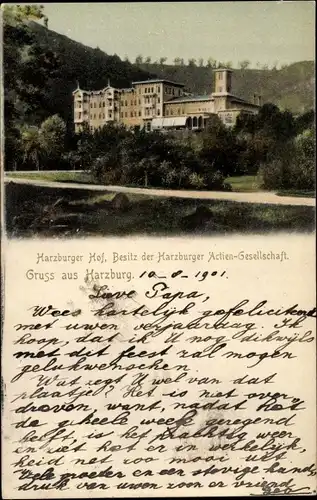 Harzburger Hof, Besitz der Harzburger Actien-Gesellschaft.
Gruss aus Harzburg. 10-8-1901.
Lieve Papa,
Wees hartelijk gefeliciteerd
met uwen verjaardag. Ik
hoop, dat ik U nog dikwijls
met dit feest zal mogen
gelukwenschen.
Wat zegt U wel van dat
plaatje? Het is niet over-
dreven want, nadat het
de geheele week geregend
heeft, is het prachtig weer
en ziet het er in werkelijk-
heid net zoo mooi uit.
Vele moeder en een stevige hand-
druk van uwen zoon en vriend